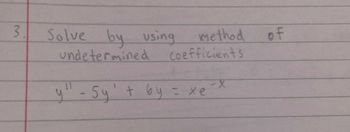 3. Solve by using method of
undetermined coefficients
y'' - 5y' + 6y = xe^-x